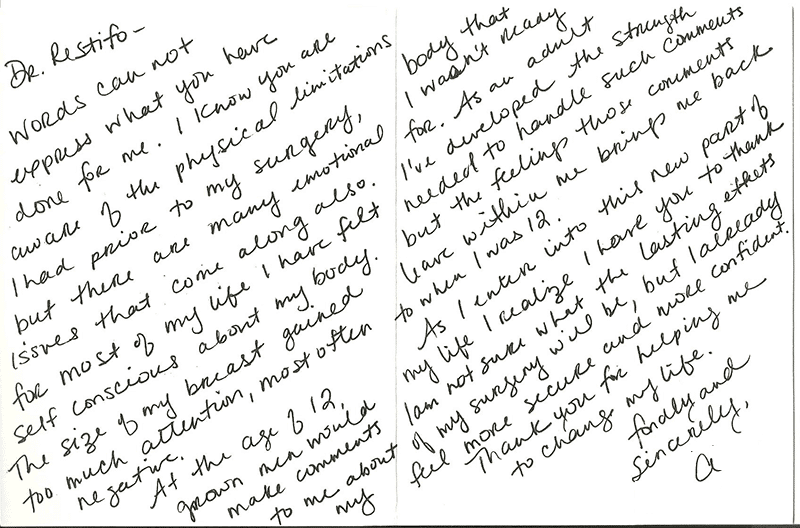 Dr. Restifo-
Words can not
express what you have
done for me. I know you are
aware of the physical limitations
I had prior to my surgery,
but there are many emotional
issues that come along also.
for most of my life I have felt
self conscious about my body.
The size of my breast gained
too much attention, most often
negative.
At the age of 12,
grown men would
make comments
to me about
my
body that
I wasn't ready
for. As an adult
I've developed the strength
needed to handle such comments
but the feelings those comments
leave within me brings me back
to when I was 12.
As I enter into this new part of
my life I realize I have you to thank
I am not sure what the lasting effects
of my surgery will be, but I already
feel more secure and more confident.
Thank you for helping me
to change my life.
fondly and
Sincerely,